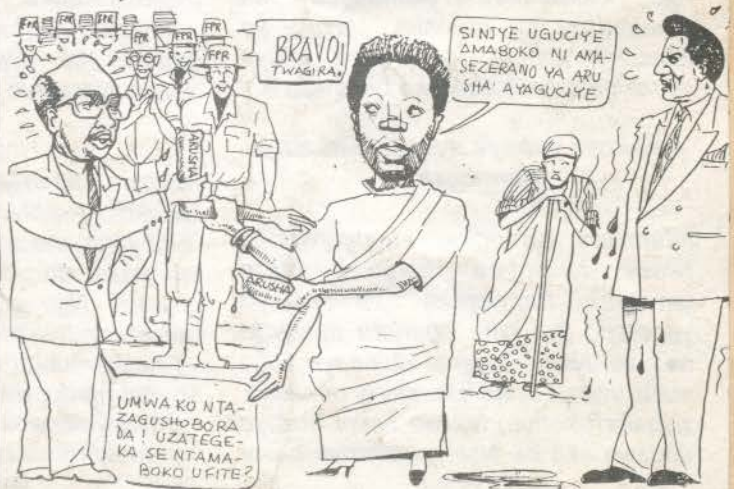 FPR
FPR
FPR
FPR
FPR
FPR
FPR
BRAVO!
TWAGIRA!
SINJYE UGUCIYE
AMABOKO NI AMA-
SEZERANO YA ARU
SHA' AYAGUCIYE
ARUSHA
ARUSHA
UMWAKO NTA-
ZAGUSHOBORA
DA! UZATEGE-
KA SE NTAMA-
BOKO UFITE?